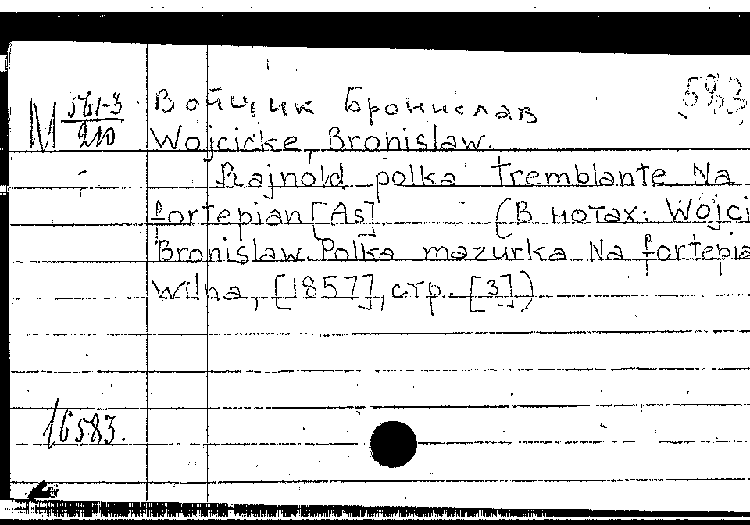 583
М 561-3/210
Войщик Бронислав
Wojcicke, Bronislaw.
Rajnold polka tremblante Na
fortepian [As] (В нотах: Wojci
Bronislaw. Polka mazurka Na fortepia
Wilna, [1857], стр. [3].)
16583.